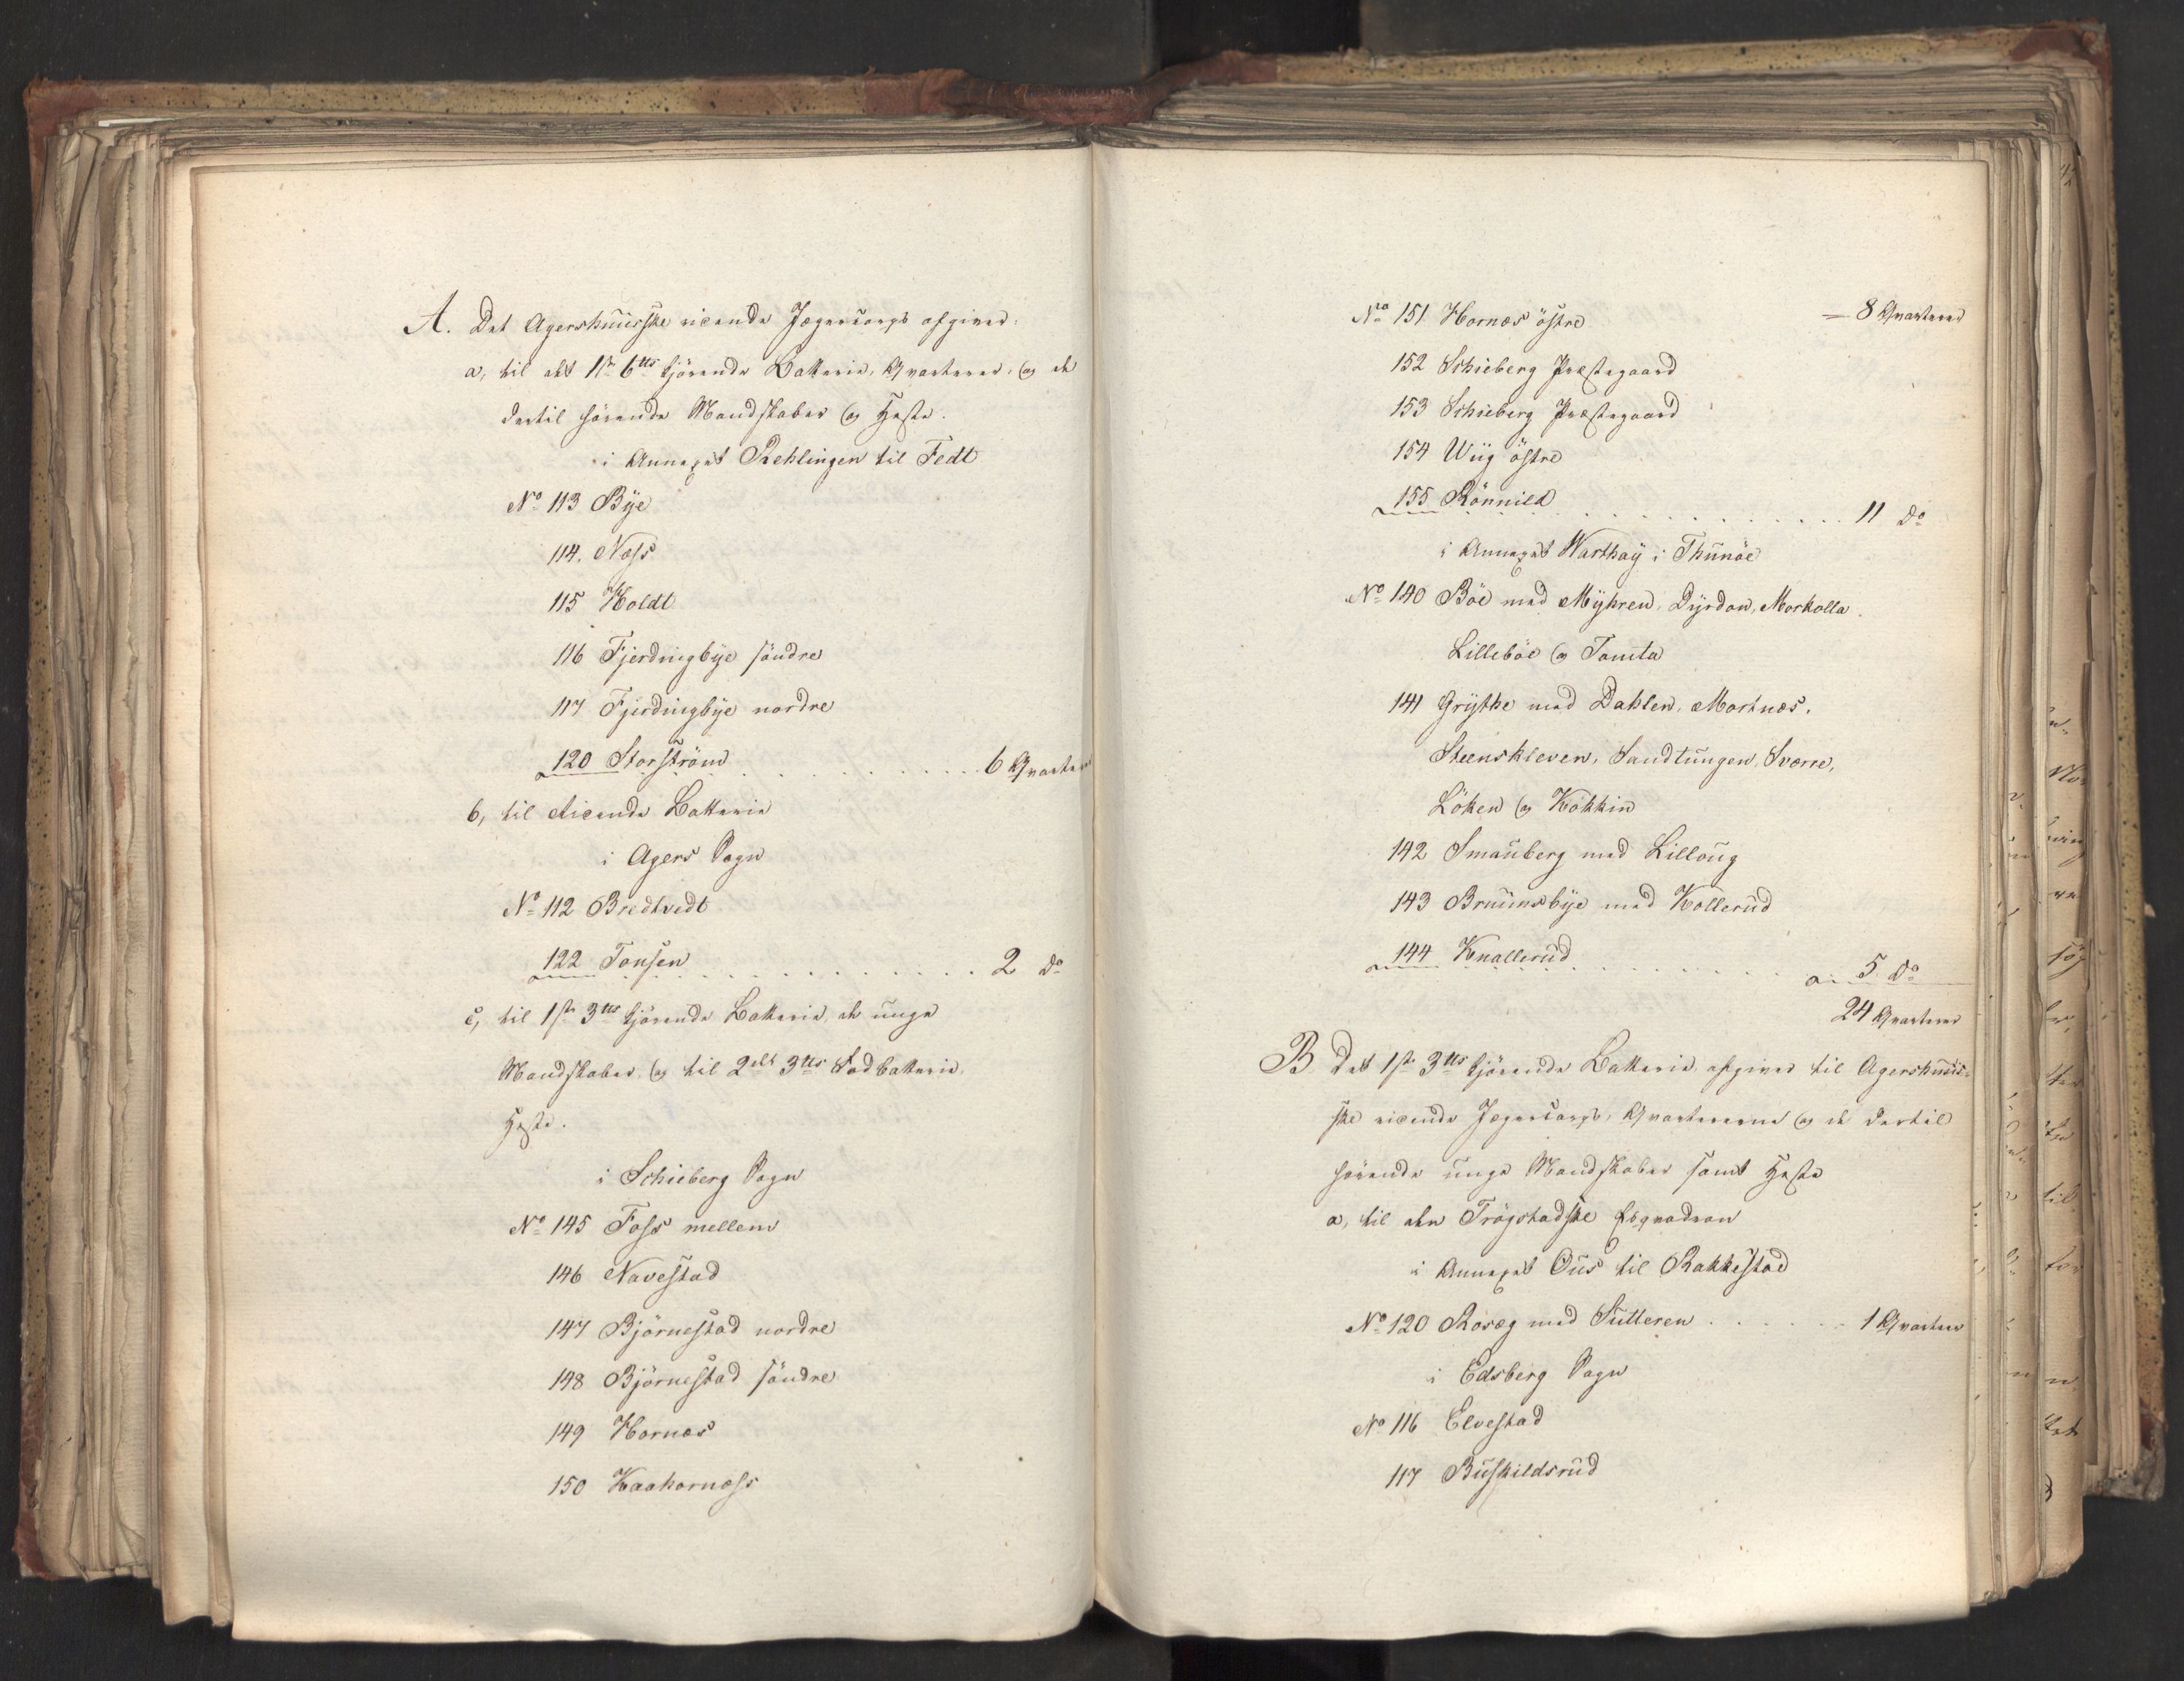 A. Det Agershuusske ridende Jægercorps afgiver:
a, til det 1ste 6tts kjörende Batterie, Qvarterer, og de
dertil hörende Mandskaber og Heste.
i Annexet Rehlingen til Fedt
No 113 Bÿe
114. Næss
115 Holdt
116 Fjerdingbÿe söndre
117 Fjerdingbÿe nordre
120 Storström . . . . . . . . . . . 6 Qvarterer
b, til ridende Batterie
i Agers Sogn
No 112 Bredtvedt
122 Tonsen . . . . . . . . . . . 2 do
c, til 1ste 3tts kjörende Batterie, de unge
Mandskaber, og til 2det 3tts Fodbatterie,
Heste.
i Schieberg Sogn
No 145 Foss mellem
146 Navestad
147 Björnestad nordre
148 Björnestad söndre
149 Hornæs
150 Kaahornæss
No 151 Hornæs östre
= 8 Qvarterer
152 Schieberg Præstegaard
153 Schieberg Præstegaard
154 Wiig östre
155 Rönnild . . . . . . . . . . . 11 do
i Annexet Warthaÿ i Thunöe
No 140 Böe med Mÿhren, Dÿrdon, Morkolla
Lilleböe og Tomta
141 Grÿthe med Dahlen, Mortnæs,
Steenskleven, Sandtungen, Sværre,
Löken og Kokkin
142 Smauberg med Lilloug
143 Bruunsbÿe med Kollerud
144 Knallerud . . . . . . . . . . . 5 do
24 Qvarterer
B. Det 1ste 3tts kjörende Batterie afgiver til Agershuus-
ske ridende Jægercorps, Qvartererne og de dertil
hörende unge Mandskaber samt Heste
a, til den Trögstadske Esqvadron
i Annexet Ous til Rakkestad
No 120 Rosæg med Sutteren . . . . . . 1 Qvarteer
i Edsberg Sogn
No 116 Elvestad
117 Buskildsrud